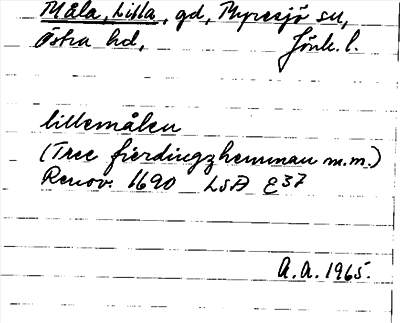 Måla, Lilla, gd, Myresjö sn,
Östra hd, Jönk. l.
lillemålen
(Tree fierdingzhemman m.m.)
Renov. 1690 LSA E37
A.A. 1965.